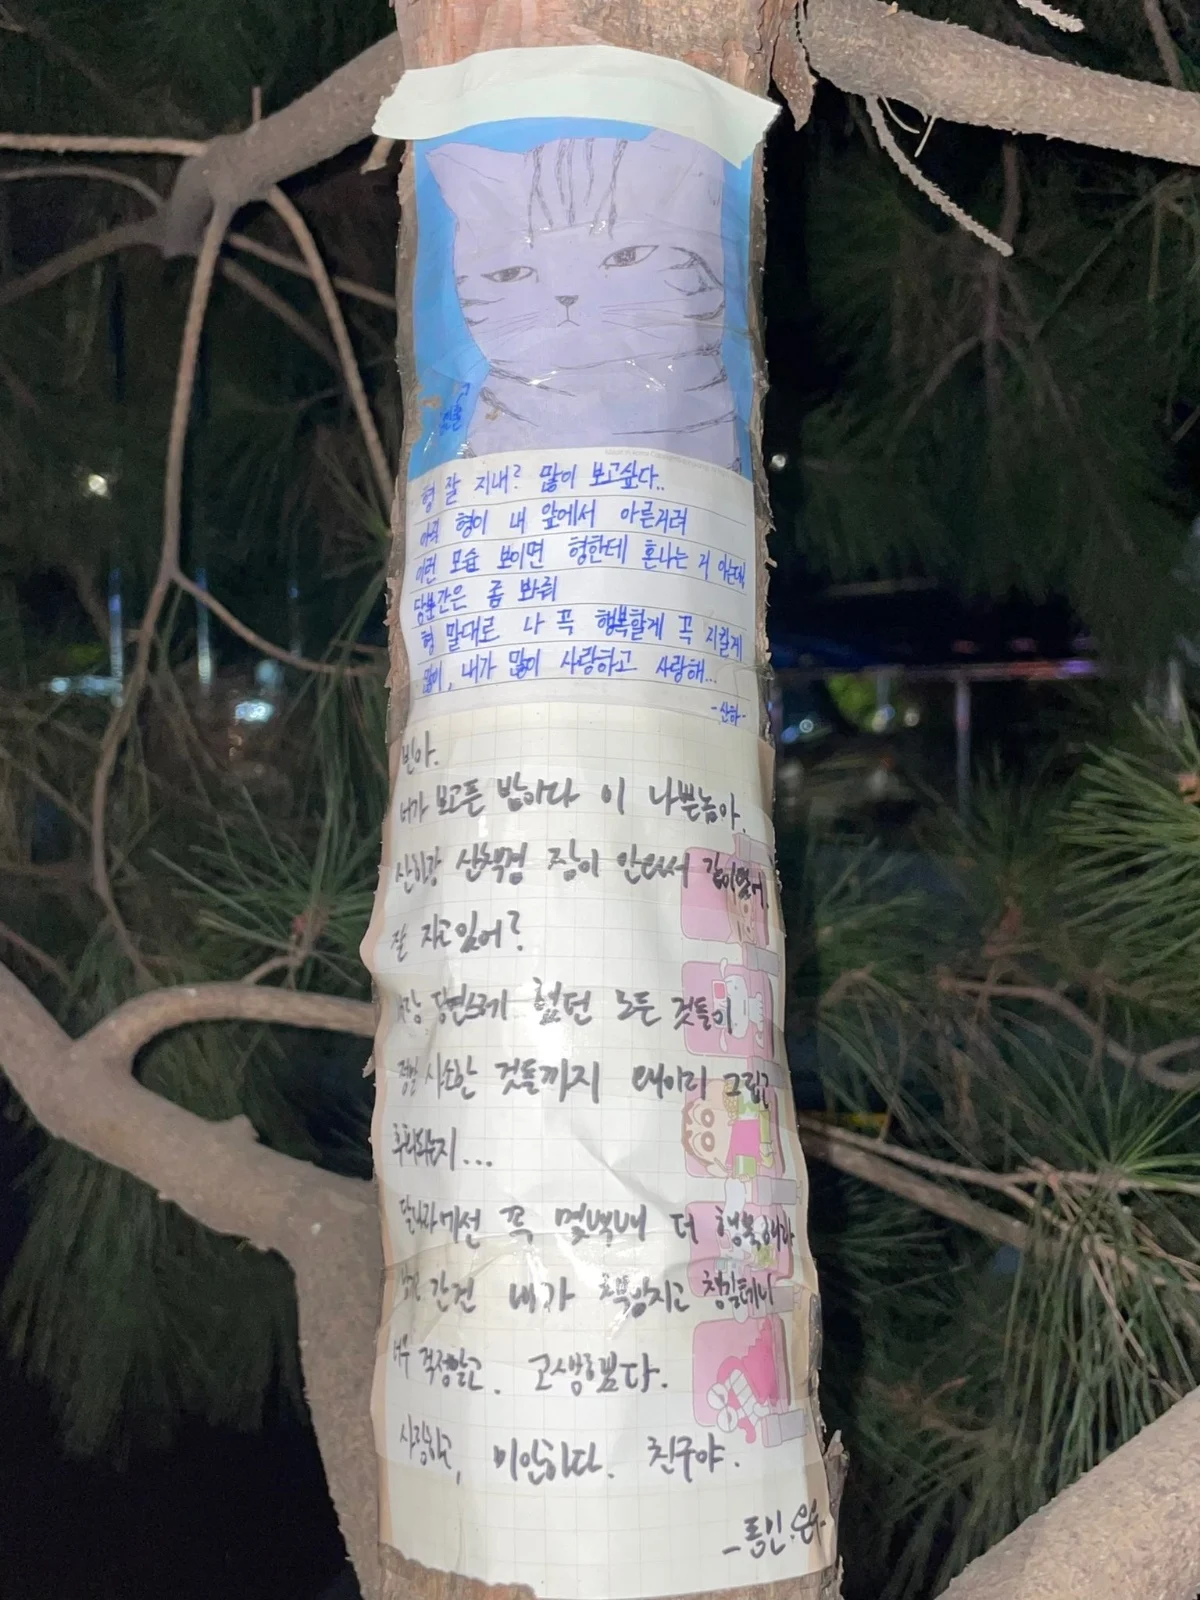 형 잘 지내? 많이 보고싶다..
아직 형이 내 앞에서 아른거려
이런 모습 보이면 형한테 혼나는 거 아는데
당분간은 좀 봐줘
형 말대로 나 꼭 행복할게 꼭 지킬게
많이, 내가 많이 사랑하고 사랑해...
-산하-
빈아.
너가 보고픈 밤이다 이 나쁜놈아.
산하랑 산책겸 잠이 안와서 같이왔어.
잘 자고있어?
그냥 당연하게 했던 모든 것들이
정말 사소한 것들까지 왜이리 그립고
후회되는지...
달나라에선 꼭 몇백배 더 행복해라
간건 내가 책임지고 챙길테니
너무 걱정말고. 고생했다.
사랑하고, 미안하다. 친구야.
-동민